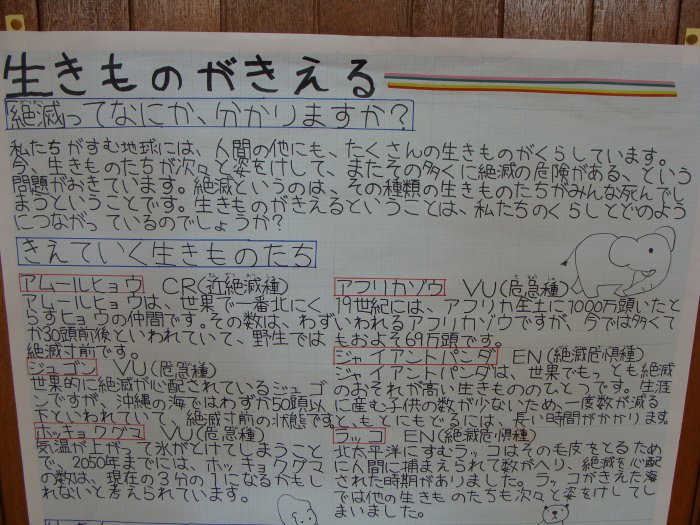 生きものがきえる
絶滅ってなにか、分かりますか？
私たちがすむ地球には、人間の他にも、たくさんの生きものがくらしています。
今、生きものたちが次々と姿をけして、またその多くに絶滅の危険がある、という
問題がおきています。絶滅というのは、その種類の生きものたちがみんな死んでし
まうということです。生きものがきえるということは、私たちのくらしとどのよう
につながっているのでしょうか？
きえていく生きものたち
アムールヒョウ CR(近絶滅種)
アムールヒョウは、世界で一番北にく
らすヒョウの仲間です。その数は、わず
か30頭前後といわれていて、野生では
絶滅寸前です。
ジュゴン VU(危急種)
世界的に絶滅が心配されているジュゴ
ンですが、沖縄の海ではわずか50頭以
下といわれていて、絶滅寸前の状態です。
ホッキョクグマ VU(危急種)
気温が上がって氷がとけてしまうこと
で、2050年までには、ホッキョクグマ
の数は、現在の3分の1になるかもし
れないと考えられています。
アフリカゾウ VU(危急種)
19世紀には、アフリカ全土に1000万頭いたと
いわれるアフリカゾウですが、今では多くて
もおよそ69万頭です。
ジャイアントパンダ EN(絶滅危惧種)
ジャイアントパンダは、世界でもっとも絶滅
のおそれが高い生きもののひとつです。生涯
に産む子供の数が少ないため、一度数が減る
と、もとにもどるには、長い時間がかかります。
ラッコ EN(絶滅危惧種)
北太平洋にすむラッコはその毛皮をとるため
に人間に捕まえられて数がへり、絶滅を心配
された時期がありました。ラッコがきえた海
では他の生きものたちも次々と姿をけしてし
まいました。